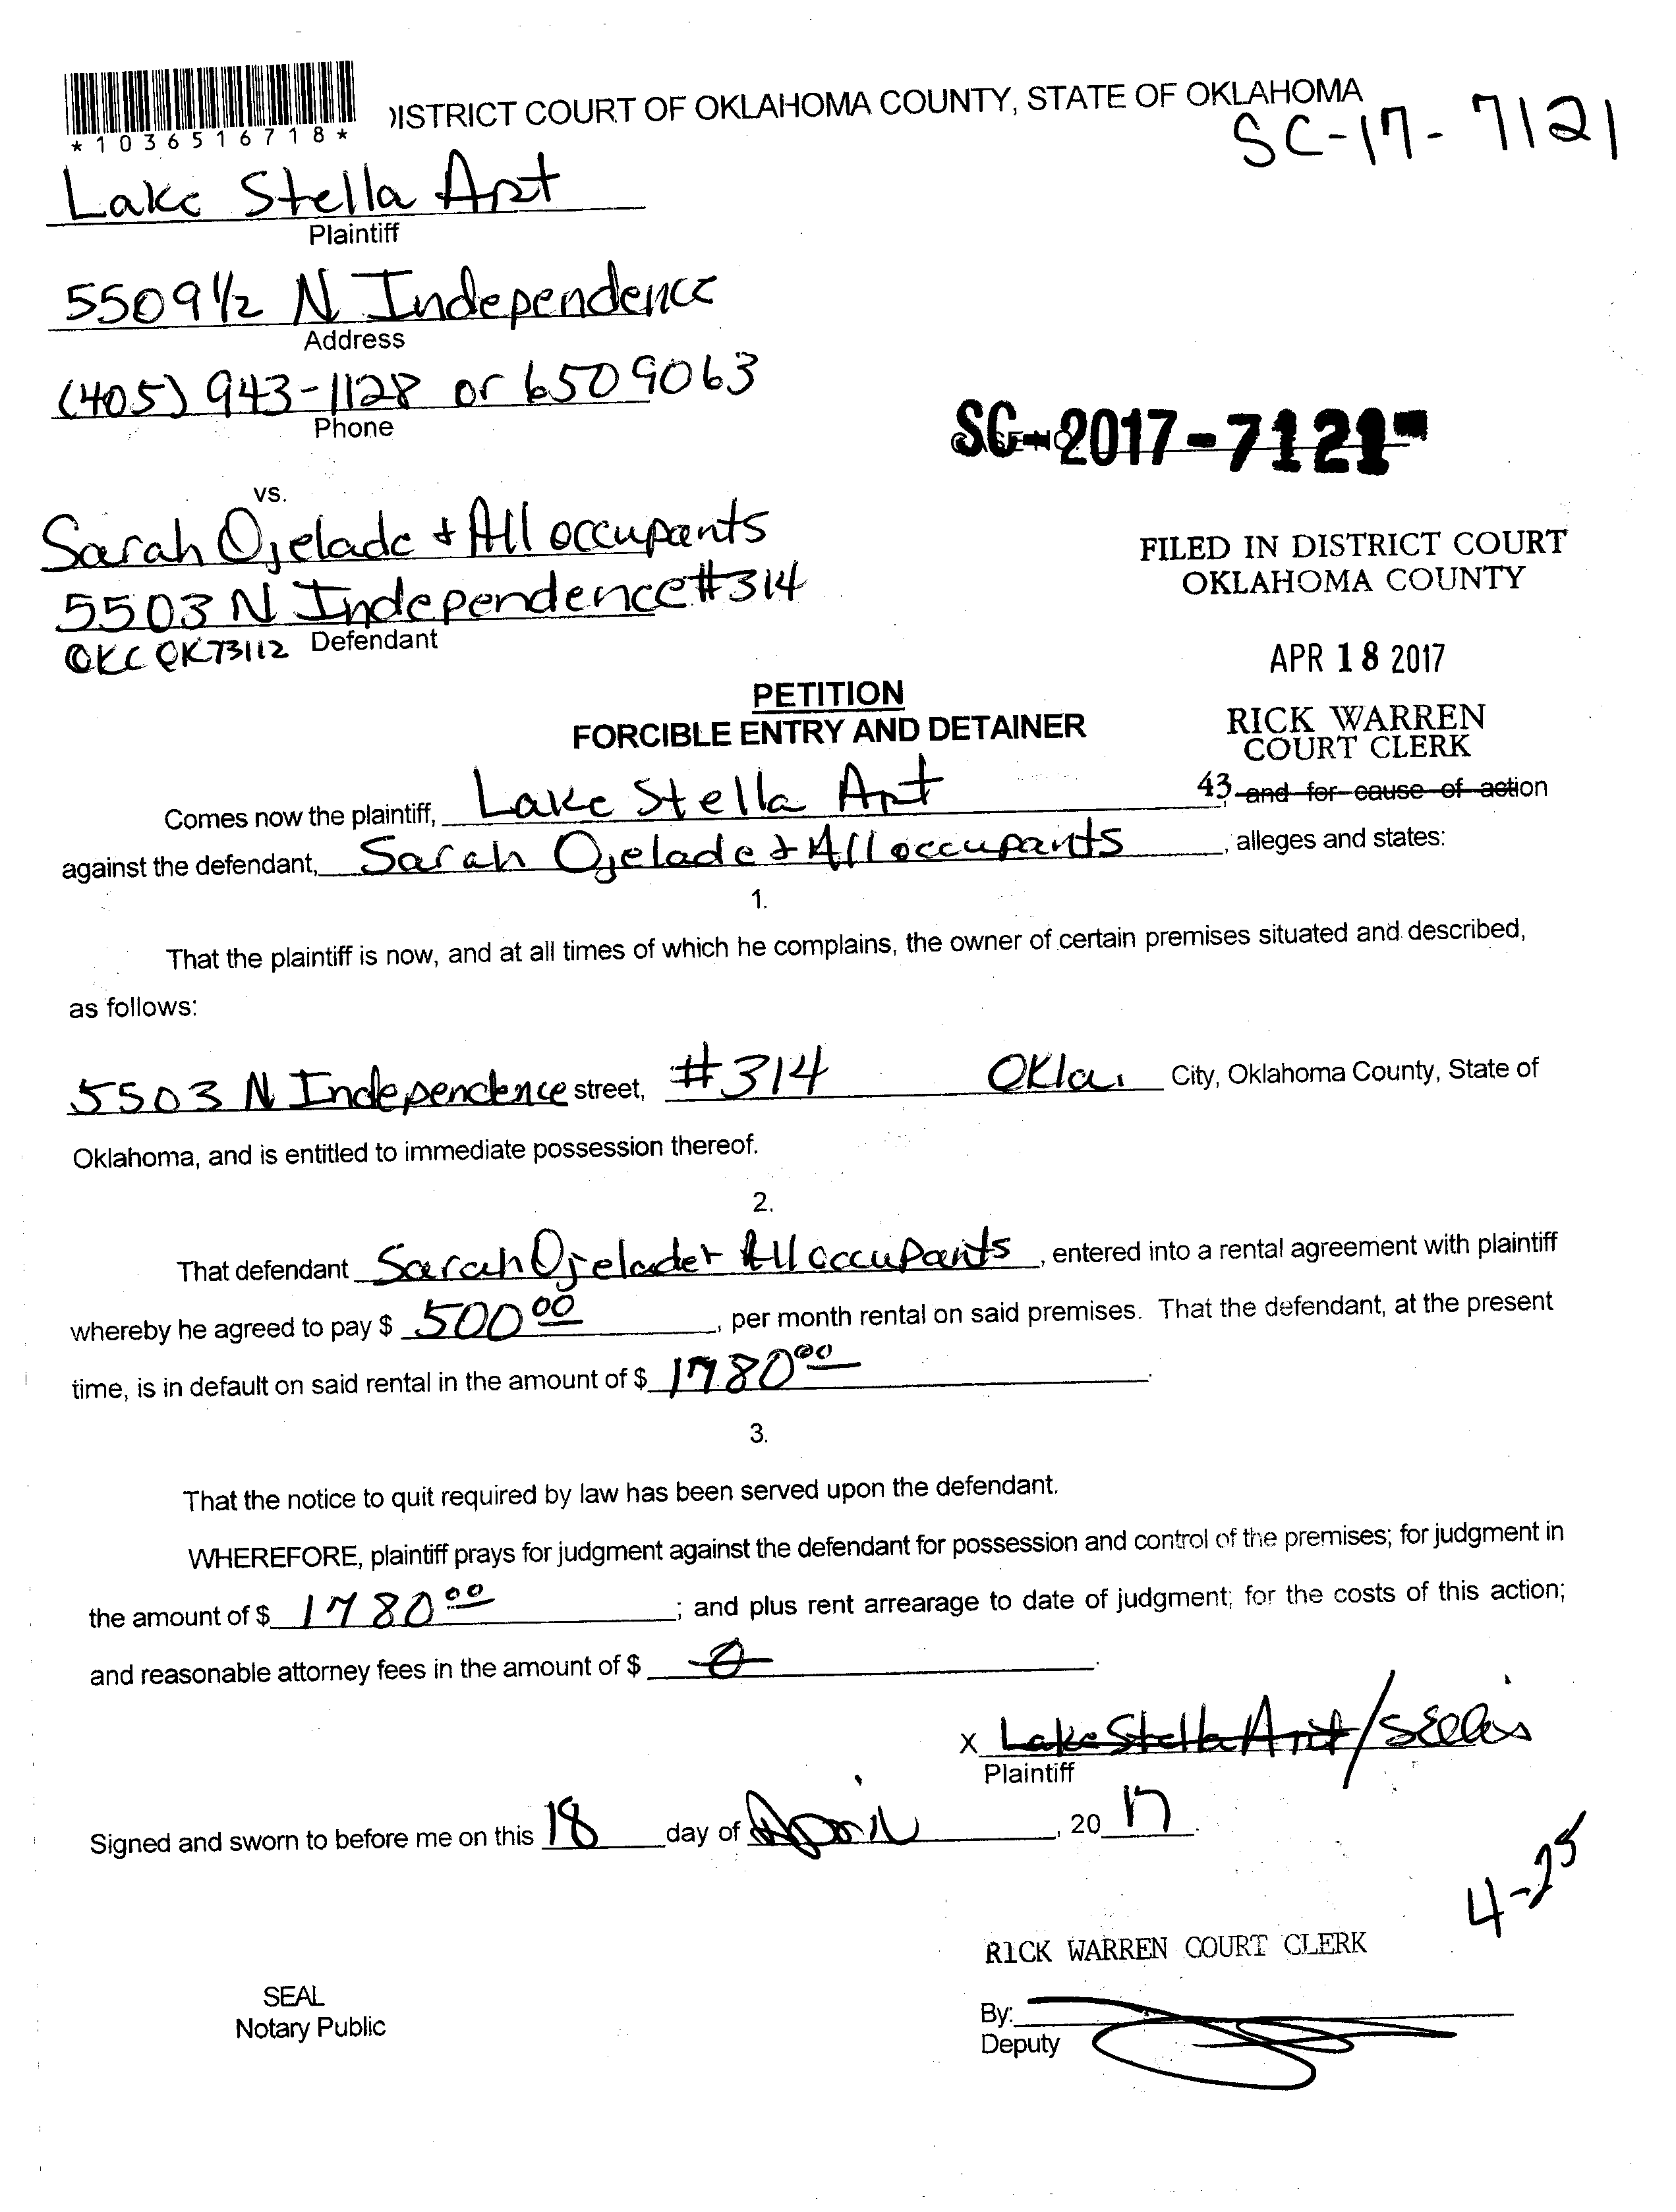 *1036516718*
DISTRICT COURT OF OKLAHOMA COUNTY, STATE OF OKLAHOMA
SC-17-7121
Lake Stella Apt
Plaintiff
5509 1/2 N Independence
Address
(405) 943-1128 or 6509063
Phone
SC-2017-7121-
vs.
Sarah Ojelade + All occupants
5503 N Independence #314
OKC OK 73112 Defendant
FILED IN DISTRICT COURT
OKLAHOMA COUNTY
APR 18 2017
RICK WARREN
COURT CLERK
43
PETITION
FORCIBLE ENTRY AND DETAINER
Comes now the plaintiff, Lake Stella Apt, and for cause of action
against the defendant, Sarah Ojelade + All occupants, alleges and states:
1.
That the plaintiff is now, and at all times of which he complains, the owner of certain premises situated and described,
as follows:
5503 N Independence street, #314 Okla. City, Oklahoma County, State of
Oklahoma, and is entitled to immediate possession thereof.
2.
That defendant Sarah Ojelade + All occupants, entered into a rental agreement with plaintiff
whereby he agreed to pay $ 500 00, per month rental on said premises. That the defendant, at the present
time, is in default on said rental in the amount of $ 1780 00.
3.
That the notice to quit required by law has been served upon the defendant.
WHEREFORE, plaintiff prays for judgment against the defendant for possession and control of the premises; for judgment in
the amount of $ 1780 00; and plus rent arrearage to date of judgment; for the costs of this action;
and reasonable attorney fees in the amount of $ 0.
X Lake Stella Apt/
Plaintiff
Signed and sworn to before me on this 18 day of April, 20 17.
4-25
RICK WARREN COURT CLERK
SEAL
Notary Public
By:
Deputy